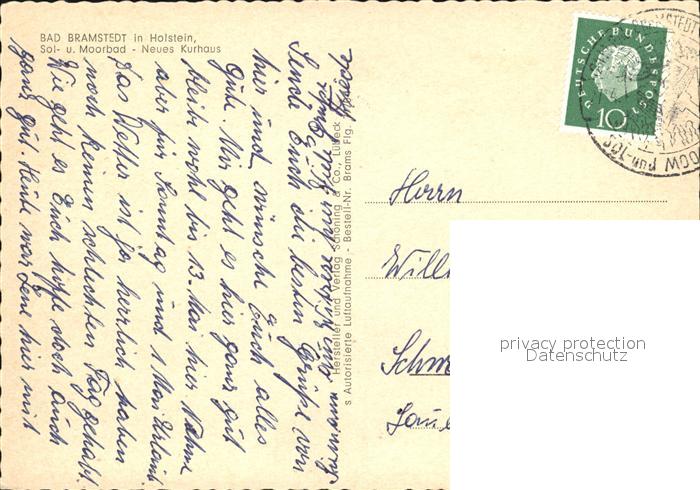 BAD BRAMSTEDT in Holstein,
Sol- u. Moorbad - Neues Kurhaus
Sende Euch die besten Grüße von
hier und wünsche Euch alles
Gute. Mir geht es hier ganz gut
bleibe wohl bis 13. Mai hier. Nehme
aber für Sonntag und 1 Mai Urlaub
Das Wetter ist ja herrlich haben
noch keinen schlechten Tag gehabt.
Wie geht es Euch hoffe doch auch
ganz gut. Heute war Lene hier mit
Hersteller und Verlag Schöning & Co., Lübeck
s Autorisierte Luftaufnahme - Bestell-Nr. Brams Flg.
DEUTSCHE BUNDESPOST
10
Herrn
Will
Schw
privacy protection
Datenschutz